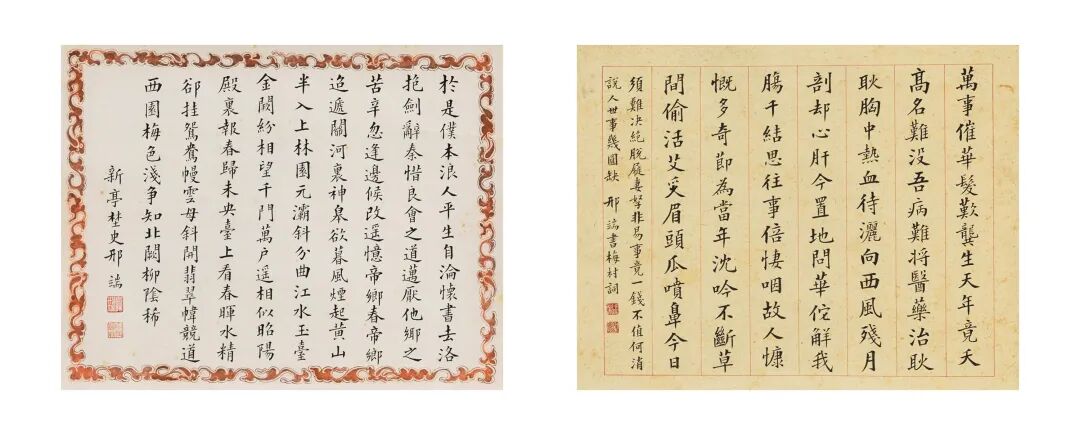 於是僕本浪人平生自淪懷書去洛
抱劍辭秦惜良會之道邁厭他鄉之
苦辛忽逢邊候改遥憶帝鄉春帝鄉
迢遞關河裏神皋欲暮風煙起黄山
半入上林園元灞斜分曲江水玉臺
金闕紛相望千門萬户遥相似昭陽
殿裏報春歸未央臺上看春暉水精
卻挂鴛鴦幔雲母斜開翡翠幃競道
西園梅色淺争知北闕柳陰稀
新亭埜史邢端
萬事催華髮歎龔生天年竟夭
高名難没吾病難將醫藥治耿
耿胸中熱血待灑向西風殘月
剖却心肝今置地問華佗解我
腸千結思往事倍悽咽故人慷
慨多奇節為當年沈吟不斷草
間偷活艾灸眉頭瓜噴鼻今日
須難决絶脱屣妻孥非易事竟一錢不值何消
説人世事幾圓缺 邢端書梅村詞